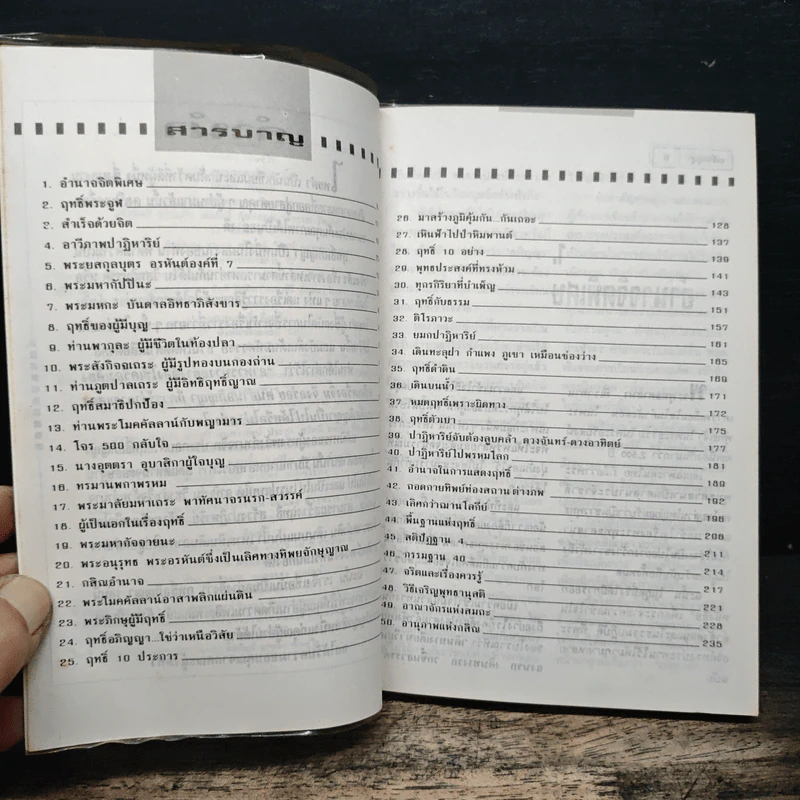 สารบาญ
1. อำนาจจิตพิเศษ
2. ฤทธิ์พระจูฬ
3. สำเร็จด้วยจิต
4. อาวีภาพปาฏิหาริย์
5. พระยสกุลบุตร อรหันต์องค์ที่ 7
6. พระมหากัปปินะ
7. พระมหกะ บันดาลอิทธาภิสังขาร
8. ฤทธิ์ของผู้มีบุญ
9. ท่านพากุละ ผู้มีชีวิตในท้องปลา
10. พระสังกิจจเถระ ผู้มีรูปทองบนกองถ่าน
11. ท่านภูตปาลเถระ ผู้มีอิทธิฤทธิ์ญาณ
12. ฤทธิ์สมาธิปกป้อง
13. ท่านพระโมคคัลลาน์กับพญามาร
14. โจร 500 กลับใจ
15. นางอุตตรา อุบาสิกาผู้ใจบุญ
16. ทรมานพกาพรหม
17. พระมาลัยมหาเถระ พาทัศนาจรนรก-สวรรค์
18. ผู้เป็นเอกในเรื่องฤทธิ์
19. พระมหากัจจายนะ
20. พระอนุรุทธ พระอรหันต์ซึ่งเป็นเลิศทางทิพยจักษุญาณ
21. กสิณอำนาจ
22. พระโมคคัลลาน์อาสาพลิกแผ่นดิน
23. พระภิกษุผู้มีฤทธิ์
24. ฤทธิ์อภิญญา..ใช่ว่าเหนือวิสัย
25. ฤทธิ์ 10 ประการ
26. มาสร้างภูมิคุ้มกัน..กันเถอะ 128
27. เหินฟ้าไปป่าหิมพานต์ 137
28. ฤทธิ์ 10 อย่าง 139
29. พุทธประสงค์ที่ทรงห้าม 141
30. ทุกรกิริยาที่บำเพ็ญ 143
31. ฤทธิ์กับธรรม 151
32. ติโรภาวะ 157
33. ยมกปาฏิหาริย์
34. เดินทะลุฝา กำแพง ภูเขา เหมือนช่องว่าง 165
35. ฤทธิ์ดำดิน 169
36. เดินบนฟ้า 171
37. หมดฤทธิ์เพราะผิดทาง 172
38. ฤทธิ์ตัวเบา 175
39. ปาฏิหาริย์จับต้องลูบคลำ ดวงจันทร์-ดวงอาทิตย์ 177
40. ปาฏิหาริย์ไปพรหมโลก 181
41. อำนาจในการแสดงฤทธิ์
42. ถอดกายทิพย์ท่องสถานต่างภพ 192
43. เลิศกว่าฌานโลกีย์ 196
44. พื้นฐานแห่งฤทธิ์ 208
45. สติปัฏฐาน 4 211
46. กรรมฐาน 40 214
47. จริตและเรื่องควรรู้ 217
48. วิธีเจริญพุทธานุสติ 221
49. อาณาจักรแห่งสมถะ 228
50. อานุภาพแห่งกสิณ 235